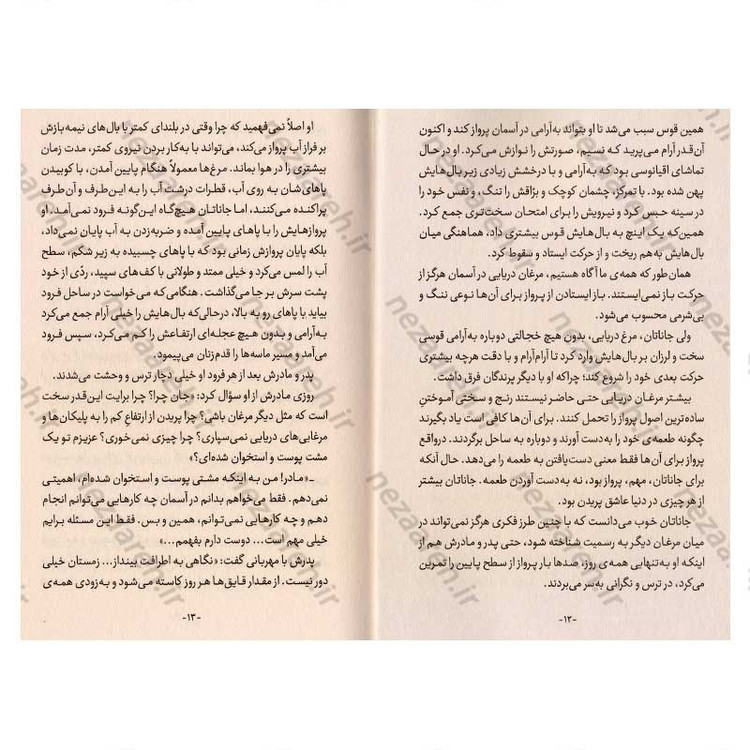 همین قوس سبب می‌شد تا او بتواند به‌آرامی در آسمان پرواز کند و اکنون
آن‌قدر آرام می‌پرید کـه نسیم، صورتش را نوازش می‌کرد. او در حال
تماشای اقیانوسی بود که به‌آرامی و با درخشش زیادی زیر بال‌هایش
پهن شده بود. با تمرکز، چشمان کوچک و براقش را تنگ، و نفس خود را
در سینه حبس کرد و نیرویش را برای امتحان سخت‌تری جمع کرد.
همین‌که یک اینچ به بال‌هایش قوس بیشتری داد، هماهنگی میان
بال‌هایش به‌هم ریخت و از حرکت ایستاد و سقوط کرد.
همان‌طور که همه‌ی ما آگاه هستیم، مرغان دریایی در آسمان هرگز از
حرکت باز نمی‌ایستند. باز ایستادن از پرواز برای آن‌ها نوعی ننگ و
بی‌شرمی محسوب می‌شود.
ولی جاناتان، مرغ دریایی، بدون هیچ خجالتی دوباره به‌آرامی قوسی
سخت و لرزان بر بال‌هایش وارد کرد تا آرام‌آرام و با دقت هرچه بیشتری
حرکت بعدی خود را شروع کند؛ چراکه او با دیگر پرندگان فرق داشت.
بیشتر مرغان دریایی حتی حاضر نیستند رنج و سختی آموختنِ
ساده‌ترین اصول پرواز را تحمل کنند. برای آن‌ها کافی است یاد بگیرند
چگونه طعمه‌ی خود را به‌دست آورند و دوباره به ساحل برگردند. درواقع
پرواز برای آن‌ها فقط معنی دست‌یافتن به طعمه را می‌دهد. حال آنکه
برای جاناتان، مهم، پرواز بود، نه به‌دست آوردن طعمه. جاناتان بیشتر
از هر چیزی در دنیا عاشق پریدن بود.
جاناتان خوب می‌دانست که با چنین طرز فکری هرگز نمی‌تواند در
میان مرغان دیگر به رسمیت شناخته شود، حتی پدر و مادرش هم از
اینکه او به‌تنهایی همه‌ی روز، صدها بار پرواز از سطح پایین را تمرین
می‌کرد، در ترس و نگرانی به‌سر می‌بردند.
-۱۲-
او اصلاً نمی‌فهمید که چرا وقتی در بلندای کمتر با بال‌های نیمه‌بازش
بر فراز آب پرواز می‌کند، می‌تواند با به‌کار بردن نیروی کمتر، مدت زمان
بیشتری را در هوا بماند. مرغ‌ها معمولاً هنگام پایین آمدن، با کوبیدن
پاهای‌شان به روی آب، قطرات درشت آب را به این‌طرف و آن‌طرف
پراکنده می‌کنند، اما جاناتان هیچ‌گاه این‌گونه فرود نمی‌آمد. او
پروازهایش را با پاهای پایین آمده و ضربه‌زدن به آب پایان نمی‌داد،
بلکه پایان پروازش زمانی بود که با پاهای چسبیده به زیر شکم، سطح
آب را لمس می‌کرد و خیلی ممتد و طولانی با کف‌های سپید، ردّی از خود
پشت سرش بر جا می‌گذاشت. هنگامی‌که می‌خواست در ساحل فرود
بیاید با پاهای رو به بالا، درحالی‌که بال‌هایش را خیلی آرام جمع می‌کرد
به‌آرامی و بدون هیچ عجله‌ای ارتفاعش را کم می‌کرد، سپس فرود
می‌آمد و مسیر ماسه‌ها را قدم‌زنان می‌پیمود.
پدر و مادرش بعد از هر فرود او خیلی دچار ترس و وحشت می‌شدند.
روزی مادرش از او سؤال کرد: «جان چرا؟ چرا برایت این‌قدر سخت
است که مثل دیگر مرغان باشی؟ چرا پریدن از ارتفاعِ کم را به پلیکان‌ها و
مرغابی‌های دریایی نمی‌سپاری؟ چرا چیزی نمی‌خوری؟ عزیزم تو یک
مشت پوست و استخوان شده‌ای؟»
ـ «مادر! من به اینکه مشتی پوست و استخوان شده‌ام، اهمیتی
نمی‌دهم. فقط می‌خواهم بدانم در آسمان چه کارهایی می‌توانم انجام
دهم و چه کارهایی نمی‌توانم، همین و بس. فقط این مسئله برایم
خیلی مهم است... دوست دارم بفهمم...»
پدرش با مهربانی گفت: «نگاهی به اطرافت بینداز... زمستان خیلی
دور نیست. از مقدار قایق‌ها هر روز کاسته می‌شود و به‌زودی همه‌ی
-۱۳-
nezaareh.ir